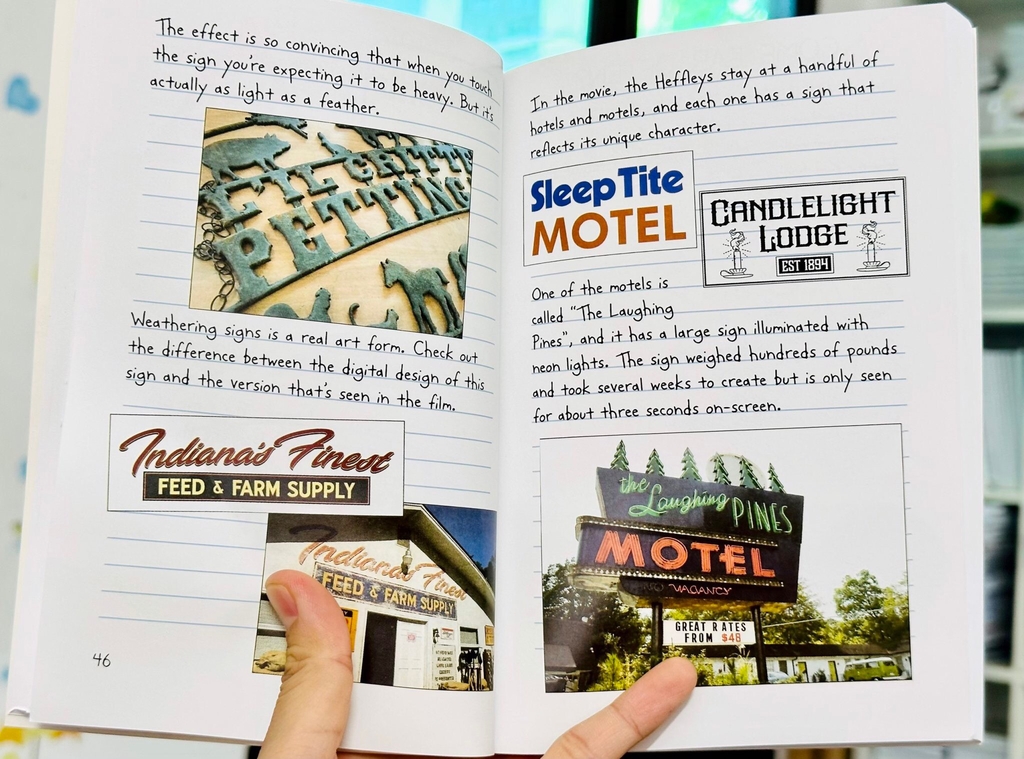 The effect is so convincing that when you touch
the sign you're expecting it to be heavy. But it's
actually as light as a feather.
LIL GRITTY
PETTING
Weathering signs is a real art form. Check out
the difference between the digital design of this
sign and the version that's seen in the film.
Indiana's Finest
FEED & FARM SUPPLY
Indiana's Finest
FEED & FARM SUPPLY
46
In the movie, the Heffleys stay at a handful of
hotels and motels, and each one has a sign that
reflects its unique character.
SleepTite
MOTEL
CANDLELIGHT
LODGE
EST 1894
One of the motels is
called "The Laughing
Pines", and it has a large sign illuminated with
neon lights. The sign weighed hundreds of pounds
and took several weeks to create but is only seen
for about three seconds on-screen.
the Laughing PINES
MOTEL
VACANCY
GREAT RATES
FROM $48